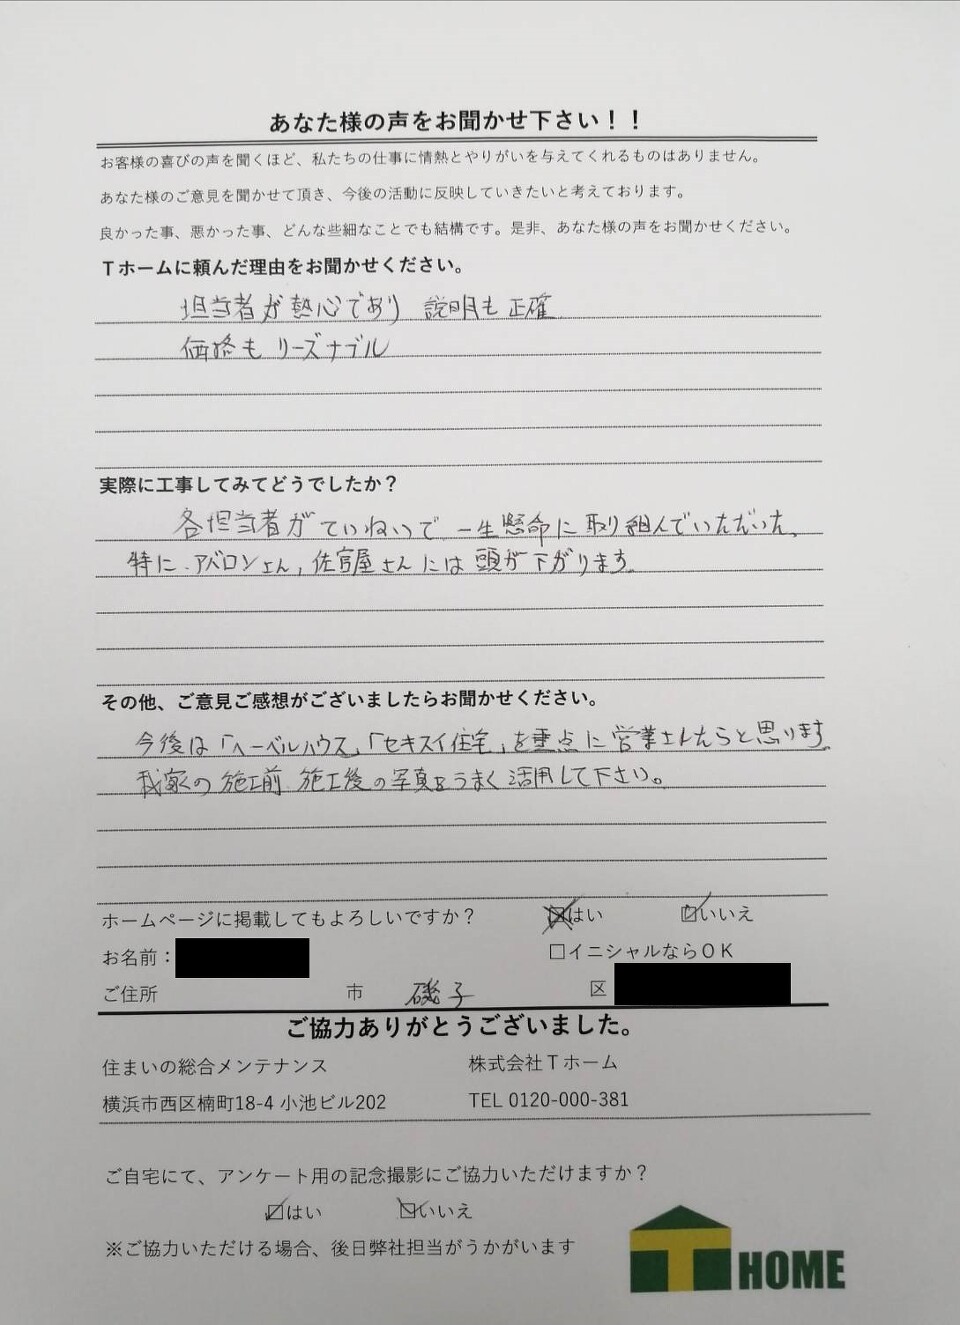 あなた様の声をお聞かせ下さい！！
お客様の喜びの声を聞くほど、私たちの仕事に情熱とやりがいを与えてくれるものはありません。
あなた様のご意見を聞かせて頂き、今後の活動に反映していきたいと考えております。
良かった事、悪かった事、どんな些細なことでも結構です。是非、あなた様の声をお聞かせください。
Ｔホームに頼んだ理由をお聞かせください。
担当者が熱心であり 説明も正確
価格も リーズナブル
実際に工事してみてどうでしたか？
各担当者がていねいで 一生懸命に取り組んでいただいた。
特に、アバロンさん, 佐官屋さんには頭が下がります。
その他、ご意見ご感想がございましたらお聞かせください。
今後は「ヘーベルハウス」「セキスイ住宅」を重点に営業されたらと思います
我家の施工前 施工後の写真をうまく活用して下さい。
ホームページに掲載してもよろしいですか？ はい いいえ
お名前： □イニシャルならＯＫ
ご住所 市 磯子 区
ご協力ありがとうございました。
住まいの総合メンテナンス 株式会社Ｔホーム
横浜市西区楠町18-4 小池ビル202 TEL 0120-000-381
ご自宅にて、アンケート用の記念撮影にご協力いただけますか？
はい いいえ
※ご協力いただける場合、後日弊社担当がうかがいます
T HOME